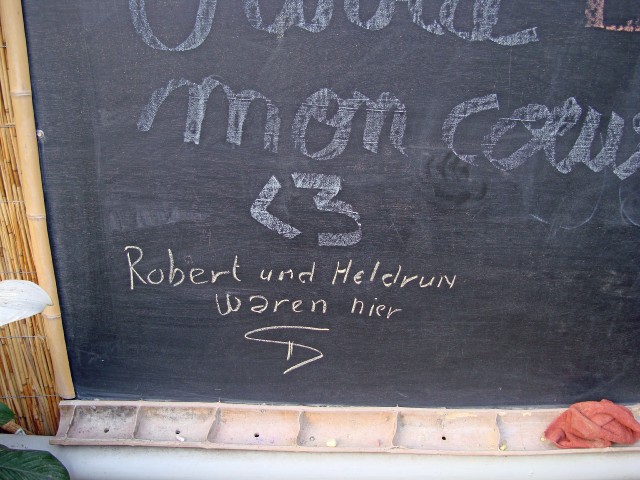 mon coeur
<3
Robert und Heldrun
waren hier